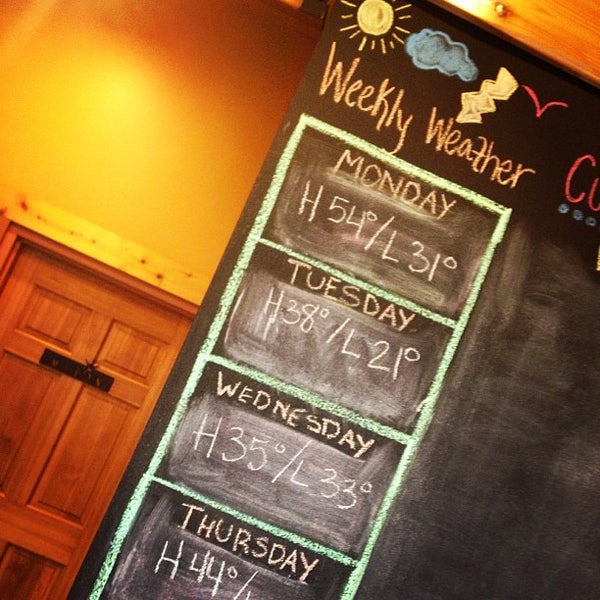 Weekly Weather
MONDAY
H 54°/L 31°
TUESDAY
H 38°/L 21°
WEDNESDAY
H 35°/L 33°
THURSDAY
H 44°/